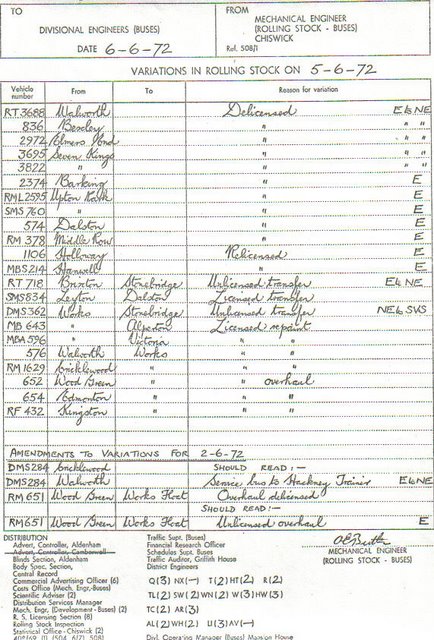 TO
DIVISIONAL ENGINEERS (BUSES)
DATE 6-6-72
FROM
MECHANICAL ENGINEER
(ROLLING STOCK - BUSES)
CHISWICK
Ref. 508/1
VARIATIONS IN ROLLING STOCK ON 5-6-72
Vehicle number From To Reason for variation
RT 3688 Walworth Delicensed E & NE
836 Bexley " " "
2972 Elmers End " " "
3695 Seven Kings " " "
3822 " " " "
2374 Barking " E
RML 2595 Upton Park " E
SMS 760 " " E
574 Dalston " E
RM 378 Middle Row " E
1106 Holloway Relicensed E
MBS 214 Hanwell " E
RT 718 Brixton Stonebridge Unlicensed transfer E & NE
SMS 834 Leyton Dalston Licensed transfer
DMS 362 Works Stonebridge Unlicensed transfer NE & SVS
MB 643 " Alperton Licensed repaint
MBA 596 " Victoria " "
576 Walworth Works " "
RM 1629 Cricklewood " " "
652 Wood Green " " overhaul
654 Edmonton " " "
RF 432 Kingston " " "
AMENDMENTS TO VARIATIONS FOR 2-6-72
DMS 284 Cricklewood SHOULD READ :-
DMS 284 Walworth Service bus to Hackney Trainer E & NE
RM 651 Wood Green Works Float Overhaul delicensed
SHOULD READ :-
RM 651 Wood Green Works Float Unlicensed overhaul E
DISTRIBUTION
Advert. Controller, Aldenham
Advert. Controller, Camberwell
Blinds Section, Aldenham
Body Spec. Section,
Central Record
Commercial Advertising Officer (6)
Costs Office (Mech. Engr.-Buses)
Scientific Adviser (2)
Distribution Services Manager
Mech. Engr. (Development - Buses) (2)
R. S. Licensing Section (8)
Rolling Stock Inspection
Statistical Office - Chiswick (2)
Traffic Supt. (Buses)
Financial Research Officer
Schedules Supt. Buses
Traffic Auditor, Griffith House
District Engineers
Q(3) NX(-) T(2) HT(2) R(2)
TL(2) SW(2) WN(2) W(3) HW(3)
TC(2) AR(3)
AL(2) WH(2) U(3) AV(-)
Divl. Operating Manager (Buses) Mansion House
MECHANICAL ENGINEER
(ROLLING STOCK - BUSES)